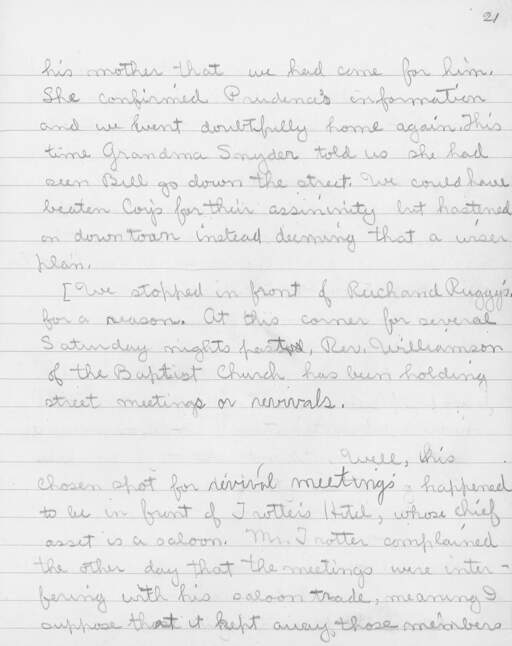 21
his mother that we had come for him.
She confirmed Prudence's information
and we went doubtfully home again. This
time Grandma Snyder told us she had
seen Bill go down the street. We could have
beaten Corp for their assininity but hastened
on down town instead deeming that a wiser
plan.
[We stopped in front of Ruggy's
for a reason. At this corner for several
Saturday nights past, Rev. Williamson
of the Baptist Church has been holding
street meetings or revivals.
Well, this
chosen spot for revival meetings happened
to be in front of Trotter's Hotel, whose chief
asset is a saloon. Mr. Trotter complained
the other day that the meetings were inter-
fering with his saloon trade, meaning I
suppose that it kept away those members